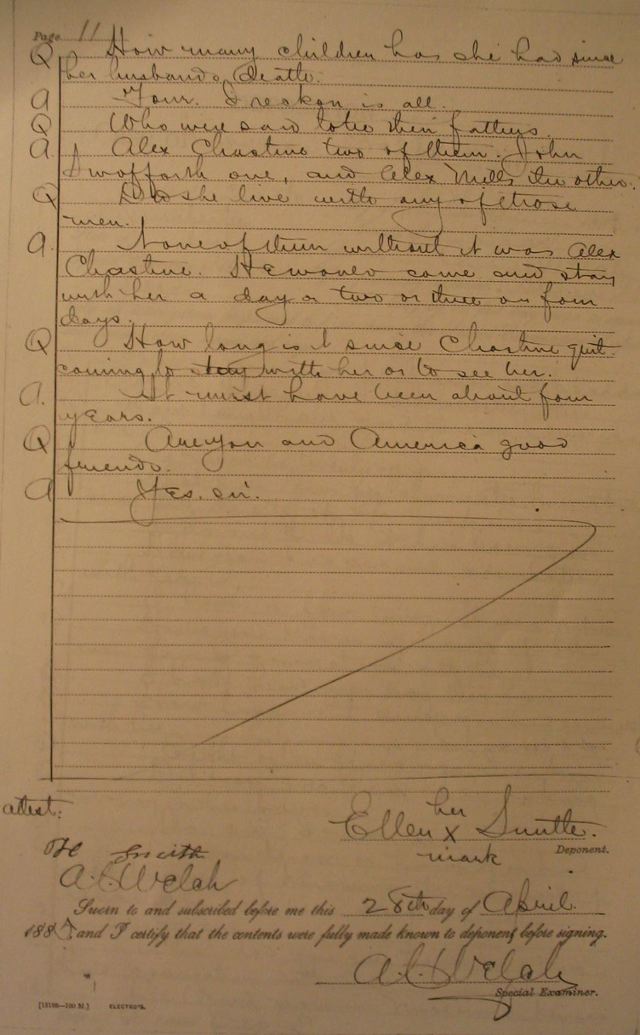 Page 11
Q How many children has she had since
her husbands death.
a Four. I reckon is all.
Q Who were said to be their fathers.
a. Alex Chastine two of them. John
Swofforth one, and Alex Mills the other.
Q Did she live with any of those
men.
a. None of them without it was Alex
Chastine. He would come and stay
with her a day or two or three or four
days.
Q How long is it since Chastine quit
coming to stay with her or to see her.
a. It must have been about four
years.
Q Are you and America good
friends.
a Yes. sir.
attest:
her
Ellen X
mark
Deponent.
Smith
A C Welch
Sworn to and subscribed before me this 28th day of April
188 and I certify that the contents were fully made known to deponent before signing.
A C Welch
Special Examiner.